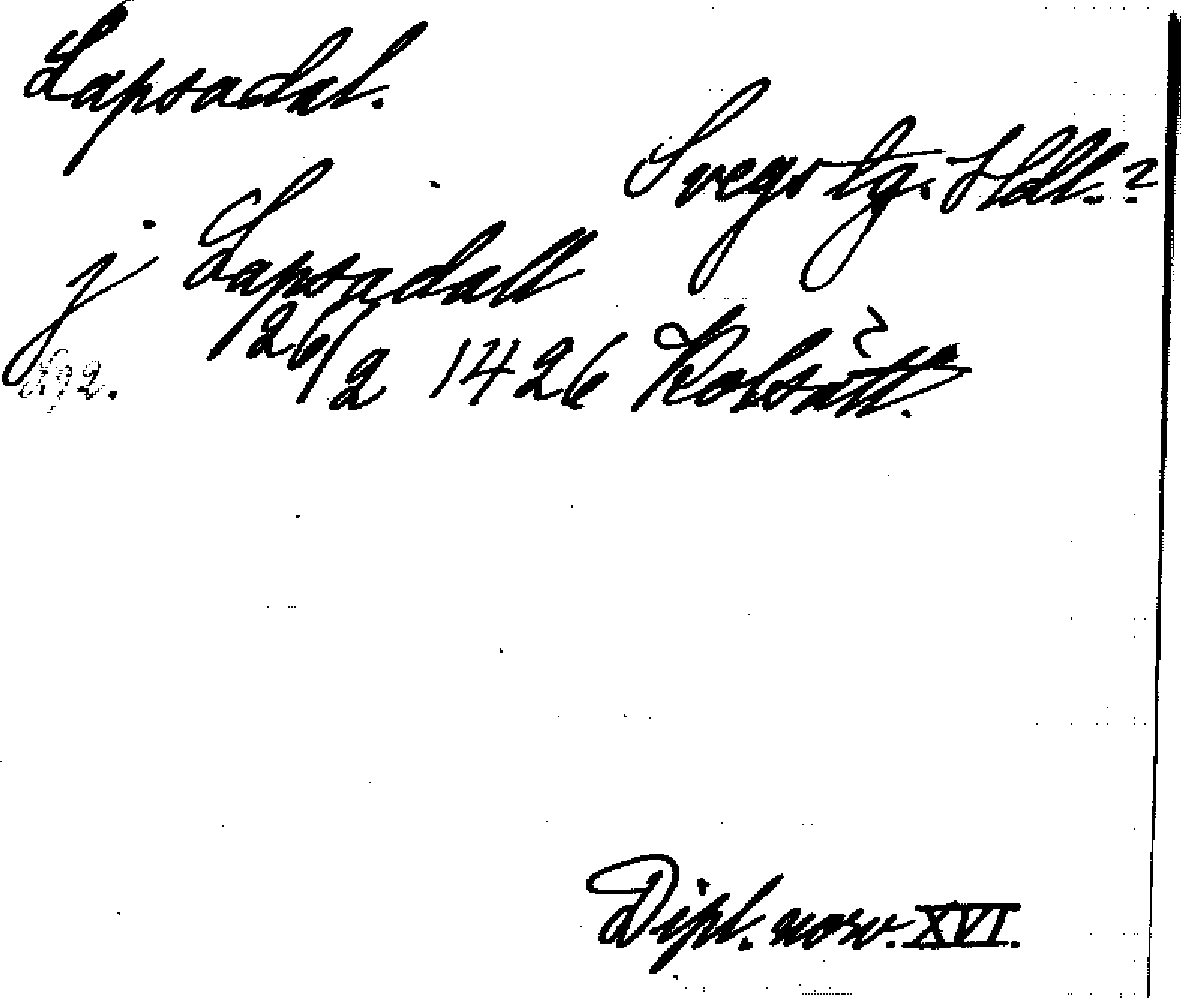 Lapsadal.
Svegs tg. Hdl.?
j Lapsadall
26/2 1426 Kolsätt.
Dipl. norv. XVI.